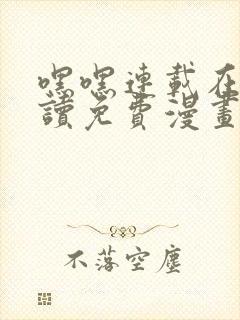 嘿嘿連載在
讀免費漫畫
不落空塵